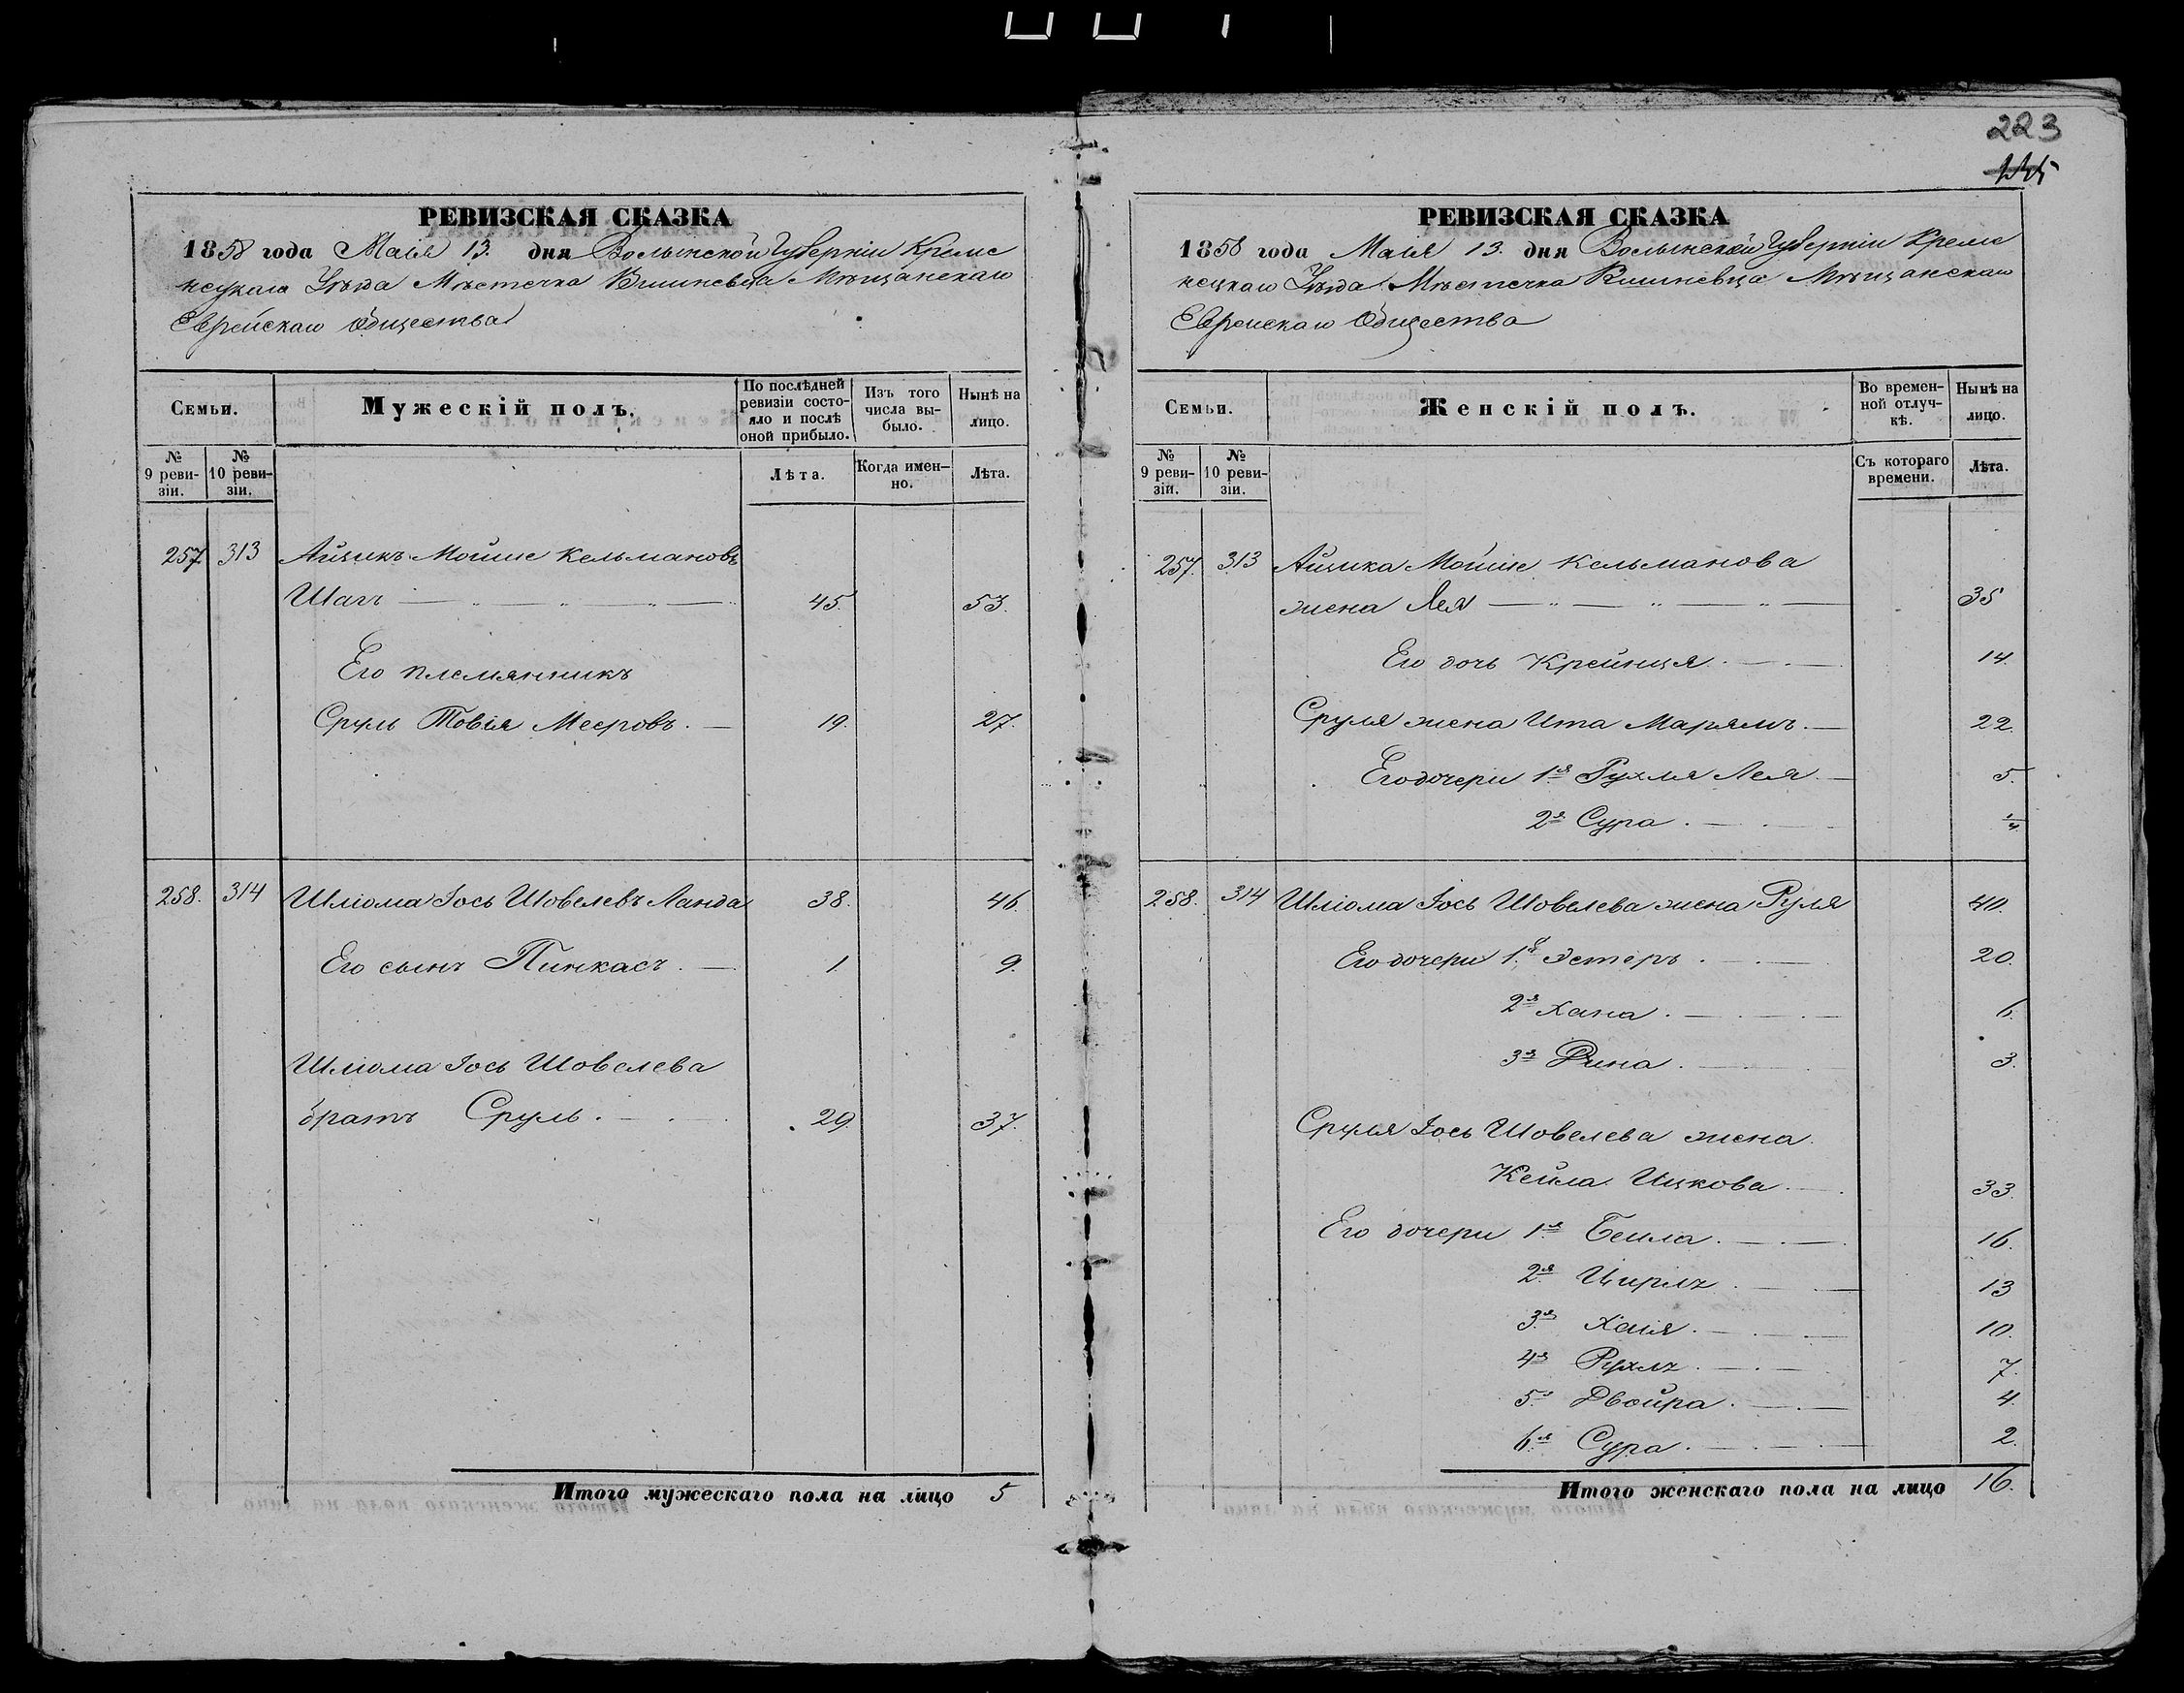 223
РЕВИЗСКАЯ СКАЗКА
1858 года Маія 13. дня Волынской Губерніи Креме
нецкаго Уѣзда Мѣстечка Вишневца Мѣщанскаго
Еврейскаго Общества
Семьи.
Мужескій полъ.
По послѣдней ревизіи состо-
яло и послѣ оной прибыло.
Изъ того числа вы-
было.
Нынѣ на лицо.
№ 9 реви-
зіи.
№ 10 реви-
зіи.
Лѣта.
Когда имен-
но.
Лѣта.
257. 313 Айцикъ Мойше Кельмановъ
Шагъ 45. 53.
Его племянникъ
Сруль Товія Мееровъ. 19. 27.
258. 314 Шліома Іось Шовелевъ Ланда 38. 46.
Его сынъ Пинкасъ. 1. 9.
Шліома Іось Шовелева
братъ Сруль. 29. 37.
Итого мужескаго пола на лицо 5
РЕВИЗСКАЯ СКАЗКА
1858 года Маія 13. дня Волынской Губерніи Креме
нецкаго Уѣзда Мѣстечка Вишневца Мѣщанскаго
Еврейскаго Общества
Семьи.
Женскій полъ.
Во времен-
ной отлуч-
кѣ.
Нынѣ на лицо.
№ 9 реви-
зіи.
№ 10 реви-
зіи.
Съ котораго времени.
Лѣта.
257. 313 Айцика Мойше Кельманова
жена Лея 35
Его дочь Крейнця. 14.
Сруля жена Ита Марямъ. 22.
Его дочери 1я Рухля Лея 5.
2я Сура. 1/4
258. 314 Шліома Іось Шовелева жена Руля 40.
Его дочери 1я Эстеръ. 20.
2я Хана. 6.
3я Дина. 3.
Сруля Іось Шовелева жена
Кейла Ицкова. 33.
Его дочери 1я Бейла. 16.
2я Цирля. 13
3я Хаія. 10.
4я Рухля. 7.
5я Двойра. 4.
6я Сура. 2.
Итого женскаго пола на лицо 16.